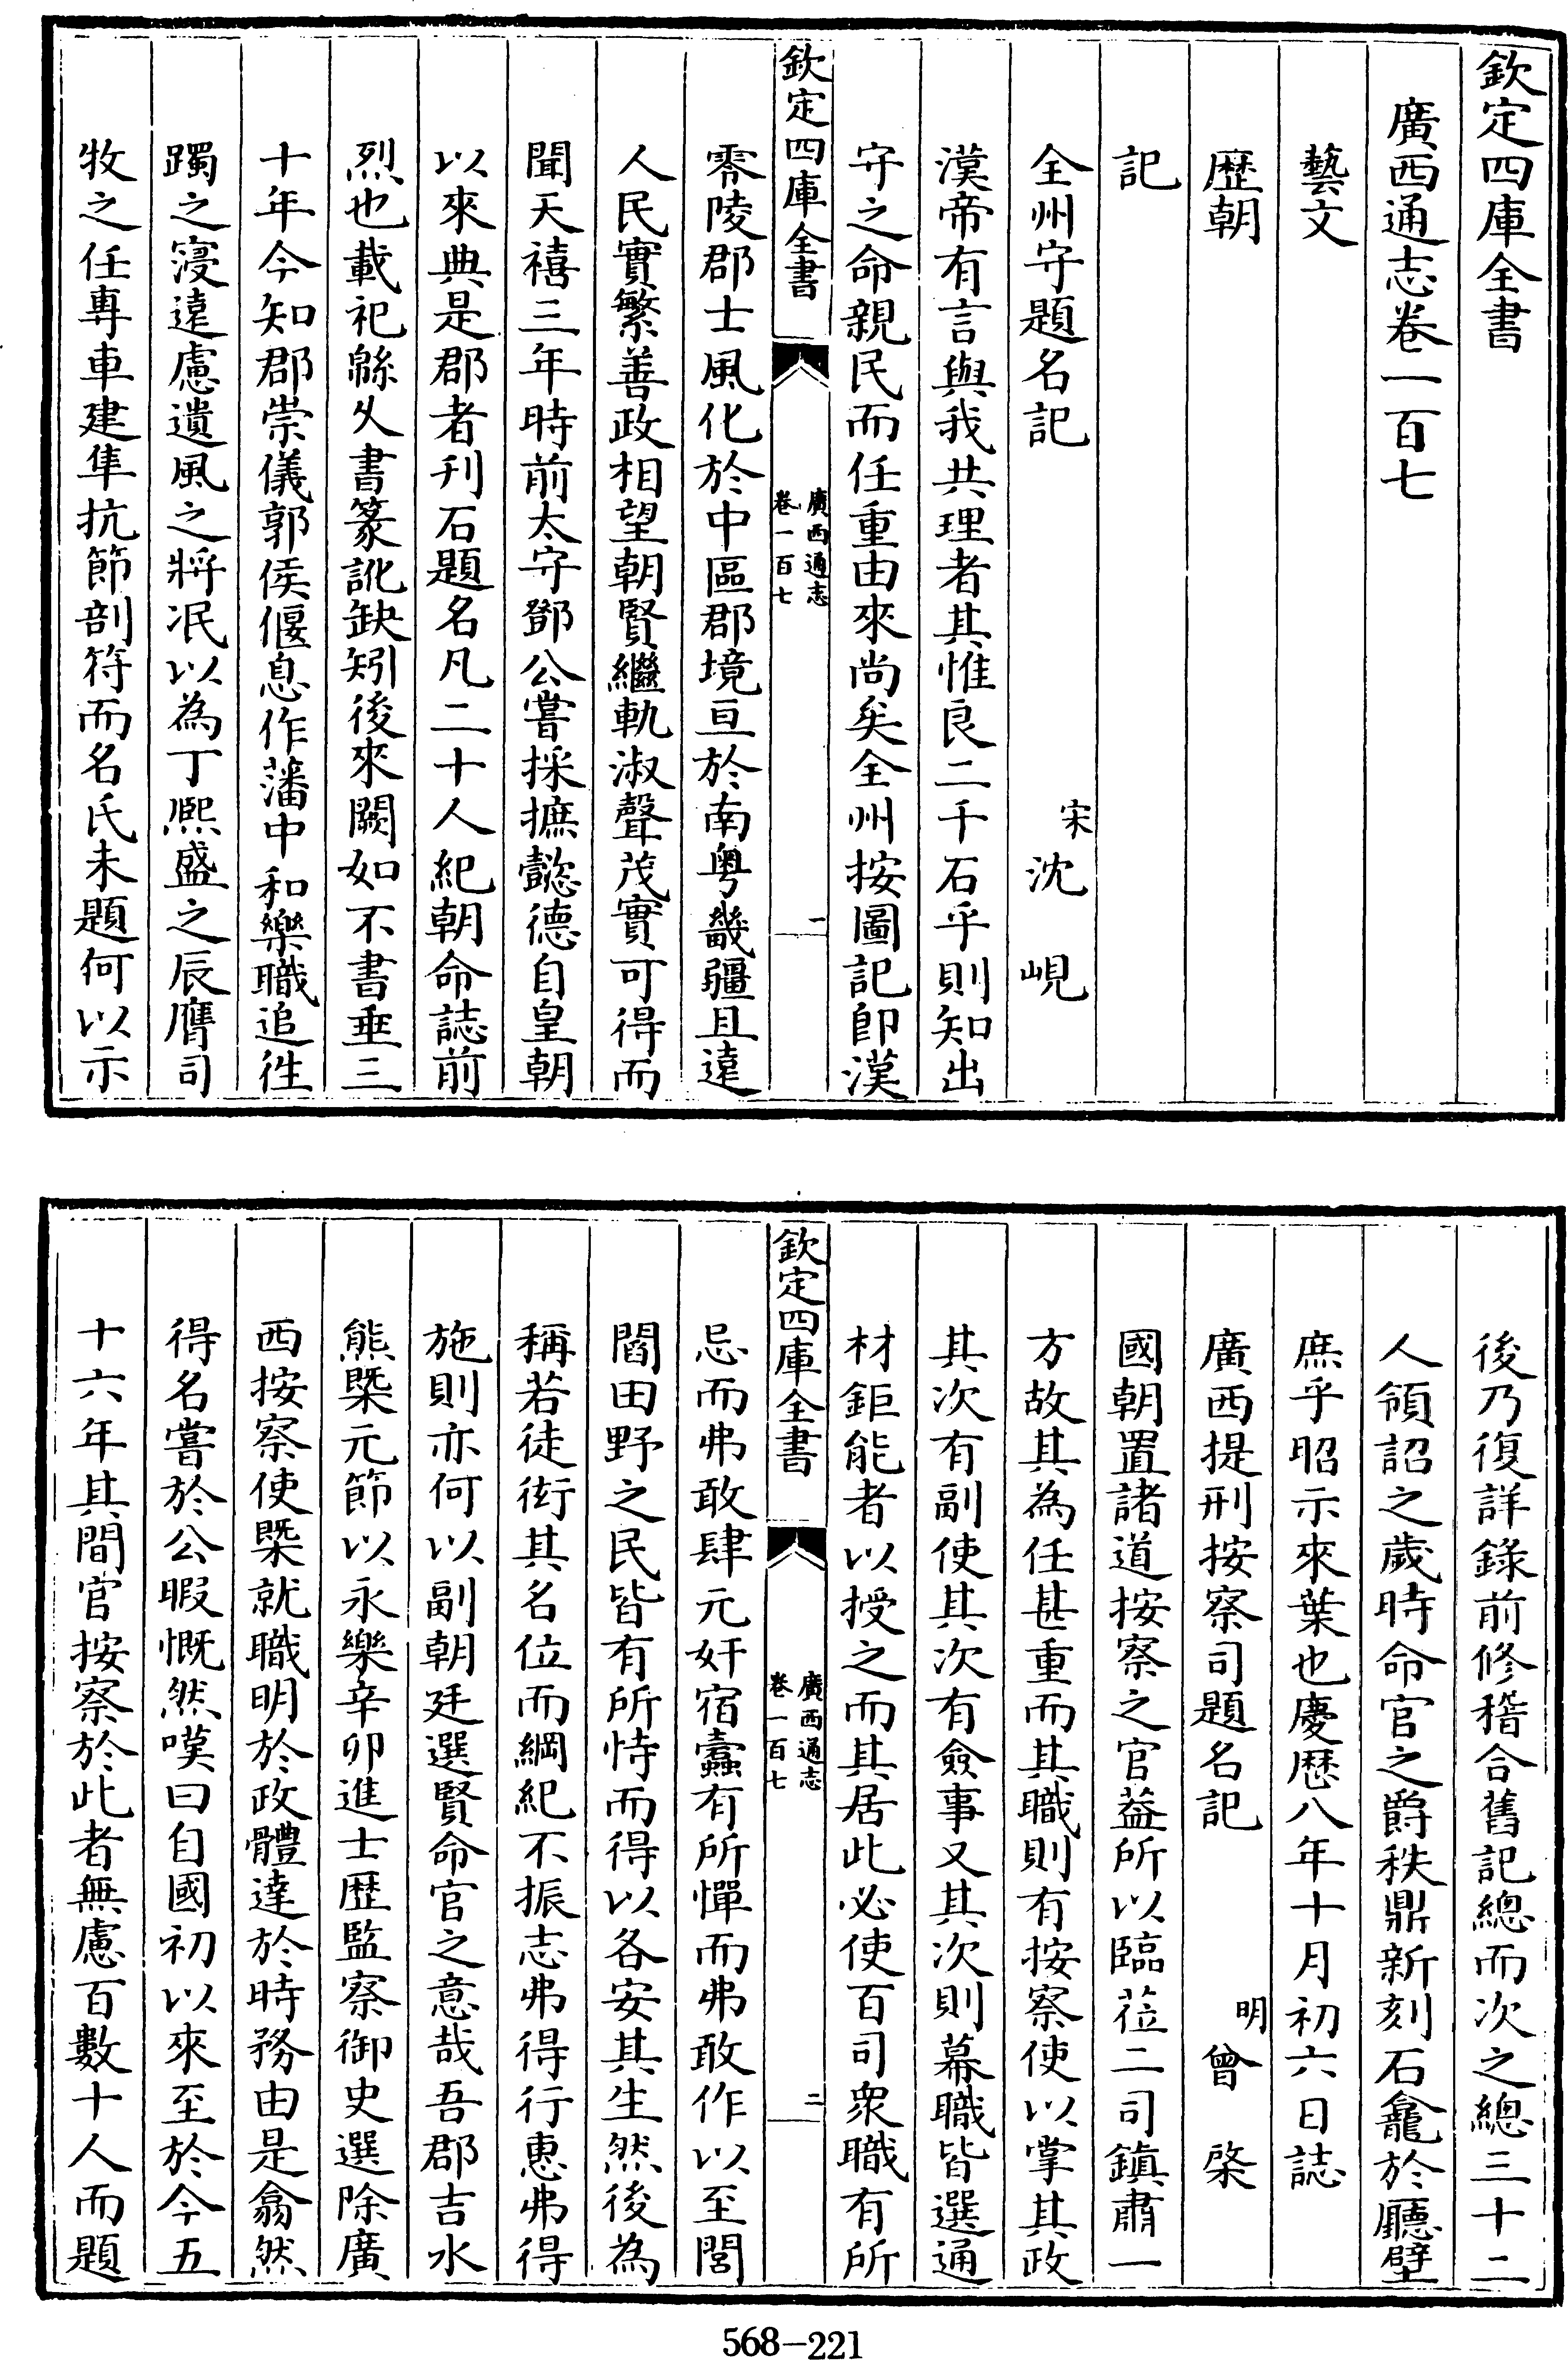 欽定四庫全書
廣西通志卷一百七
藝文
歷朝
記
全州守題名記
宋沈峴
漢帝有言與我共理者其惟良二千石乎則知出
守之命親民而任重由來尚矣全州按圖記即漢
欽定四庫全書
廣西通志
卷一百七
一
零陵郡士風化於中區郡境亘於南粤畿疆且遠
人民實繁善政相望朝賢繼軌淑聲茂實可得而
聞天禧三年時前太守鄧公嘗採摭懿德自皇朝
以來典是郡者刋石題名凡二十人紀朝命誌前
烈也載祀緜乆書篆訛缺矧後來闕如不書垂三
十年今知郡崇儀郭侯偃息作藩中和樂職追徃
躅之寖遠慮遺風之將冺以為丁熙盛之辰膺司
牧之任專車建隼抗節剖符而名氏未題何以示
後乃復詳錄前修稽合舊記總而次之總三十二
人領詔之歲時命官之爵秩鼎新刻石龕於廳壁
庶乎昭示來葉也慶歷八年十月初六日誌
廣西提刑按察司題名記
明曾棨
國朝置諸道按察之官葢所以臨蒞二司鎮肅一
方故其為任甚重而其職則有按察使以掌其政
其次有副使其次有僉事又其次則幕職皆選通
材鉅能者以授之而其居此必使百司衆職有所
欽定四庫全書
廣西通志
卷一百七
二
忌而弗敢肆元奸宿蠹有所憚而弗敢作以至閭
閻田野之民皆有所恃而得以各安其生然後為
稱若徒衒其名位而綱紀不振志弗得行惠弗得
施則亦何以副朝廷選賢命官之意哉吾郡吉水
熊槩元節以永樂辛卯進士歴監察御史選除廣
西按察使槩就職明於政體達於時務由是翕然
得名嘗於公暇慨然嘆曰自國初以來至於今五
十六年其間官按察於此者無慮百數十人而題
568-221